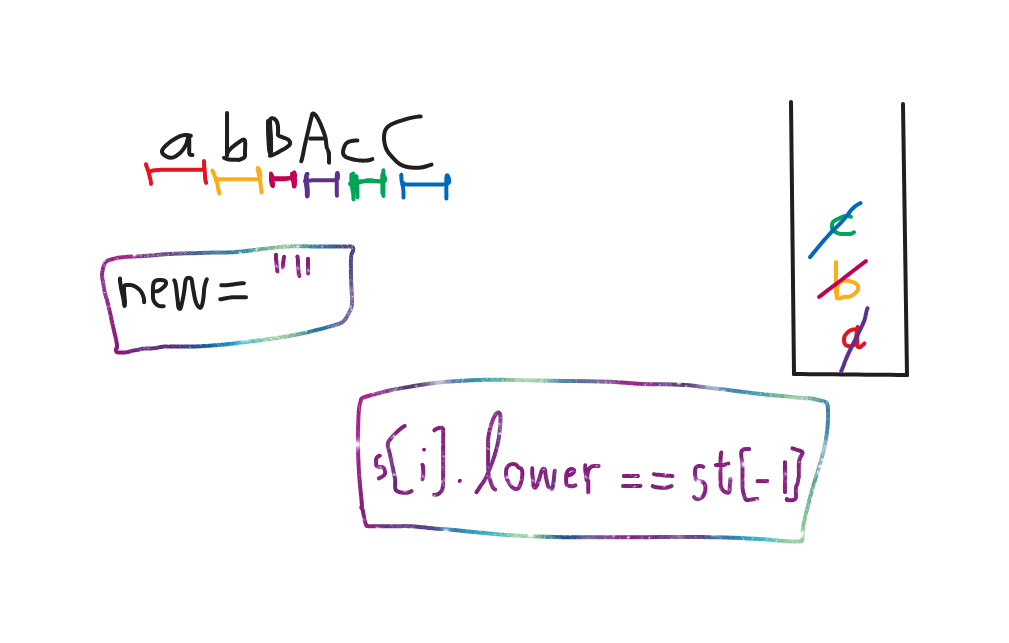 abBAcC
new= ""
c
b
a
s[i].lower == st[-1]